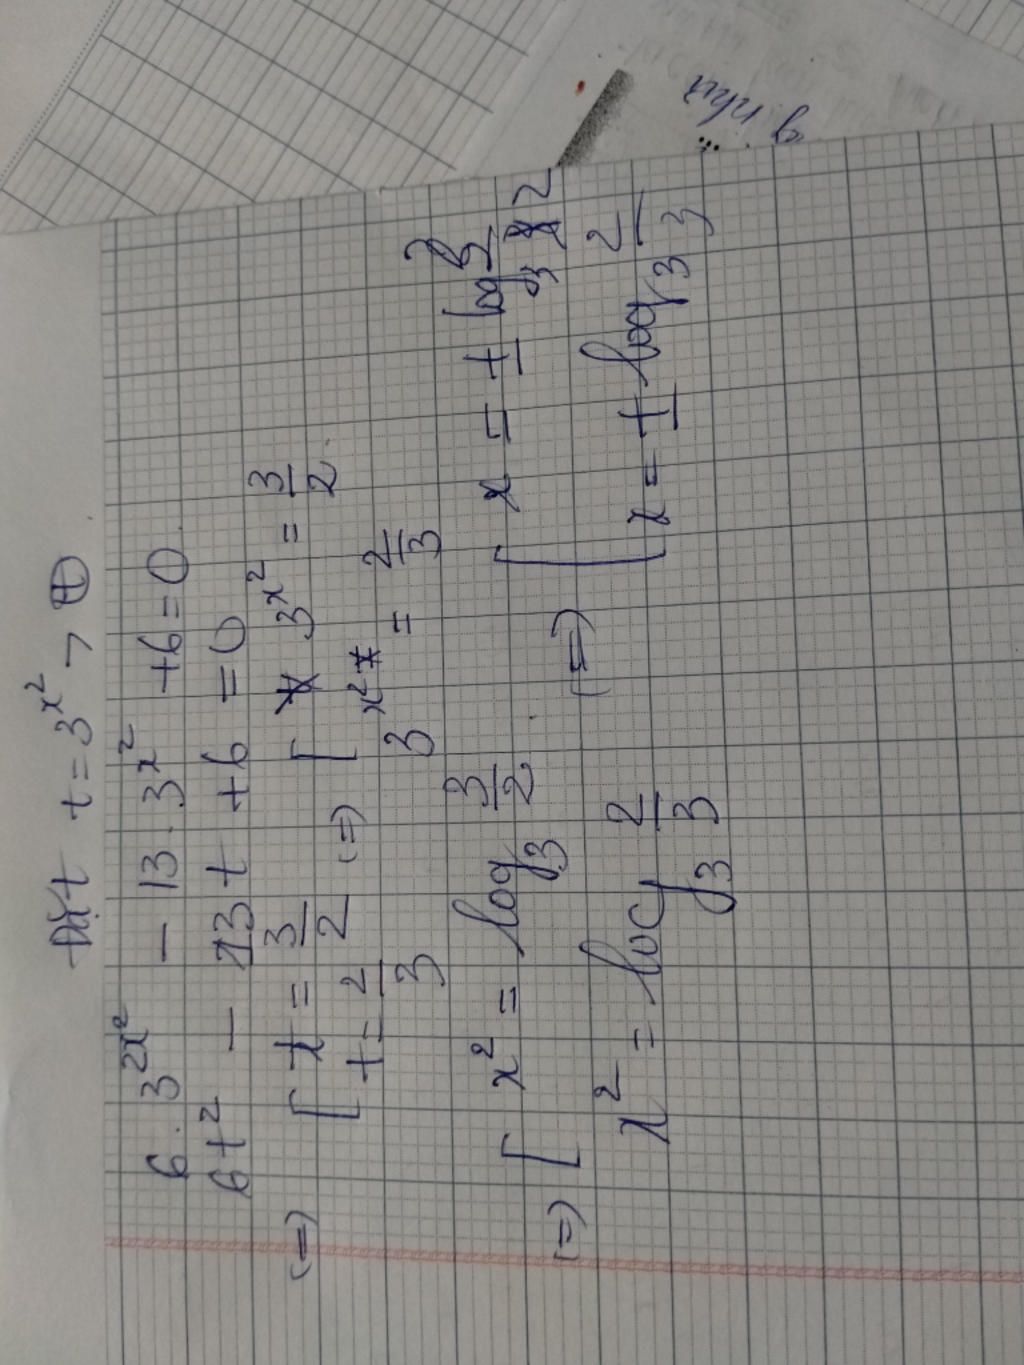 Đặt t = 3^{x^2} > 0
6 . 3^{2x^2} - 13 . 3^{x^2} + 6 = 0
6t^2 - 13t + 6 = 0
(=) [ t = 3/2 (=) [ 3^{x^2} = 3/2
t = 2/3 3^{x^2} = 2/3
(=) [ x^2 = log_3 3/2 (=) [ x = ± log_3 3/2
x^2 = log_3 2/3 x = ± log_3 2/3